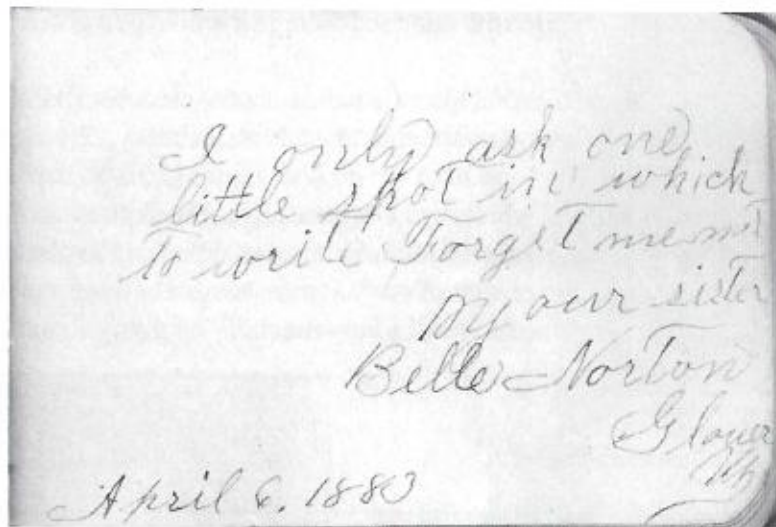 I only ask one
little spot in which
to write Forget me not
your sister
Belle Norton
Glover
April 6. 1883